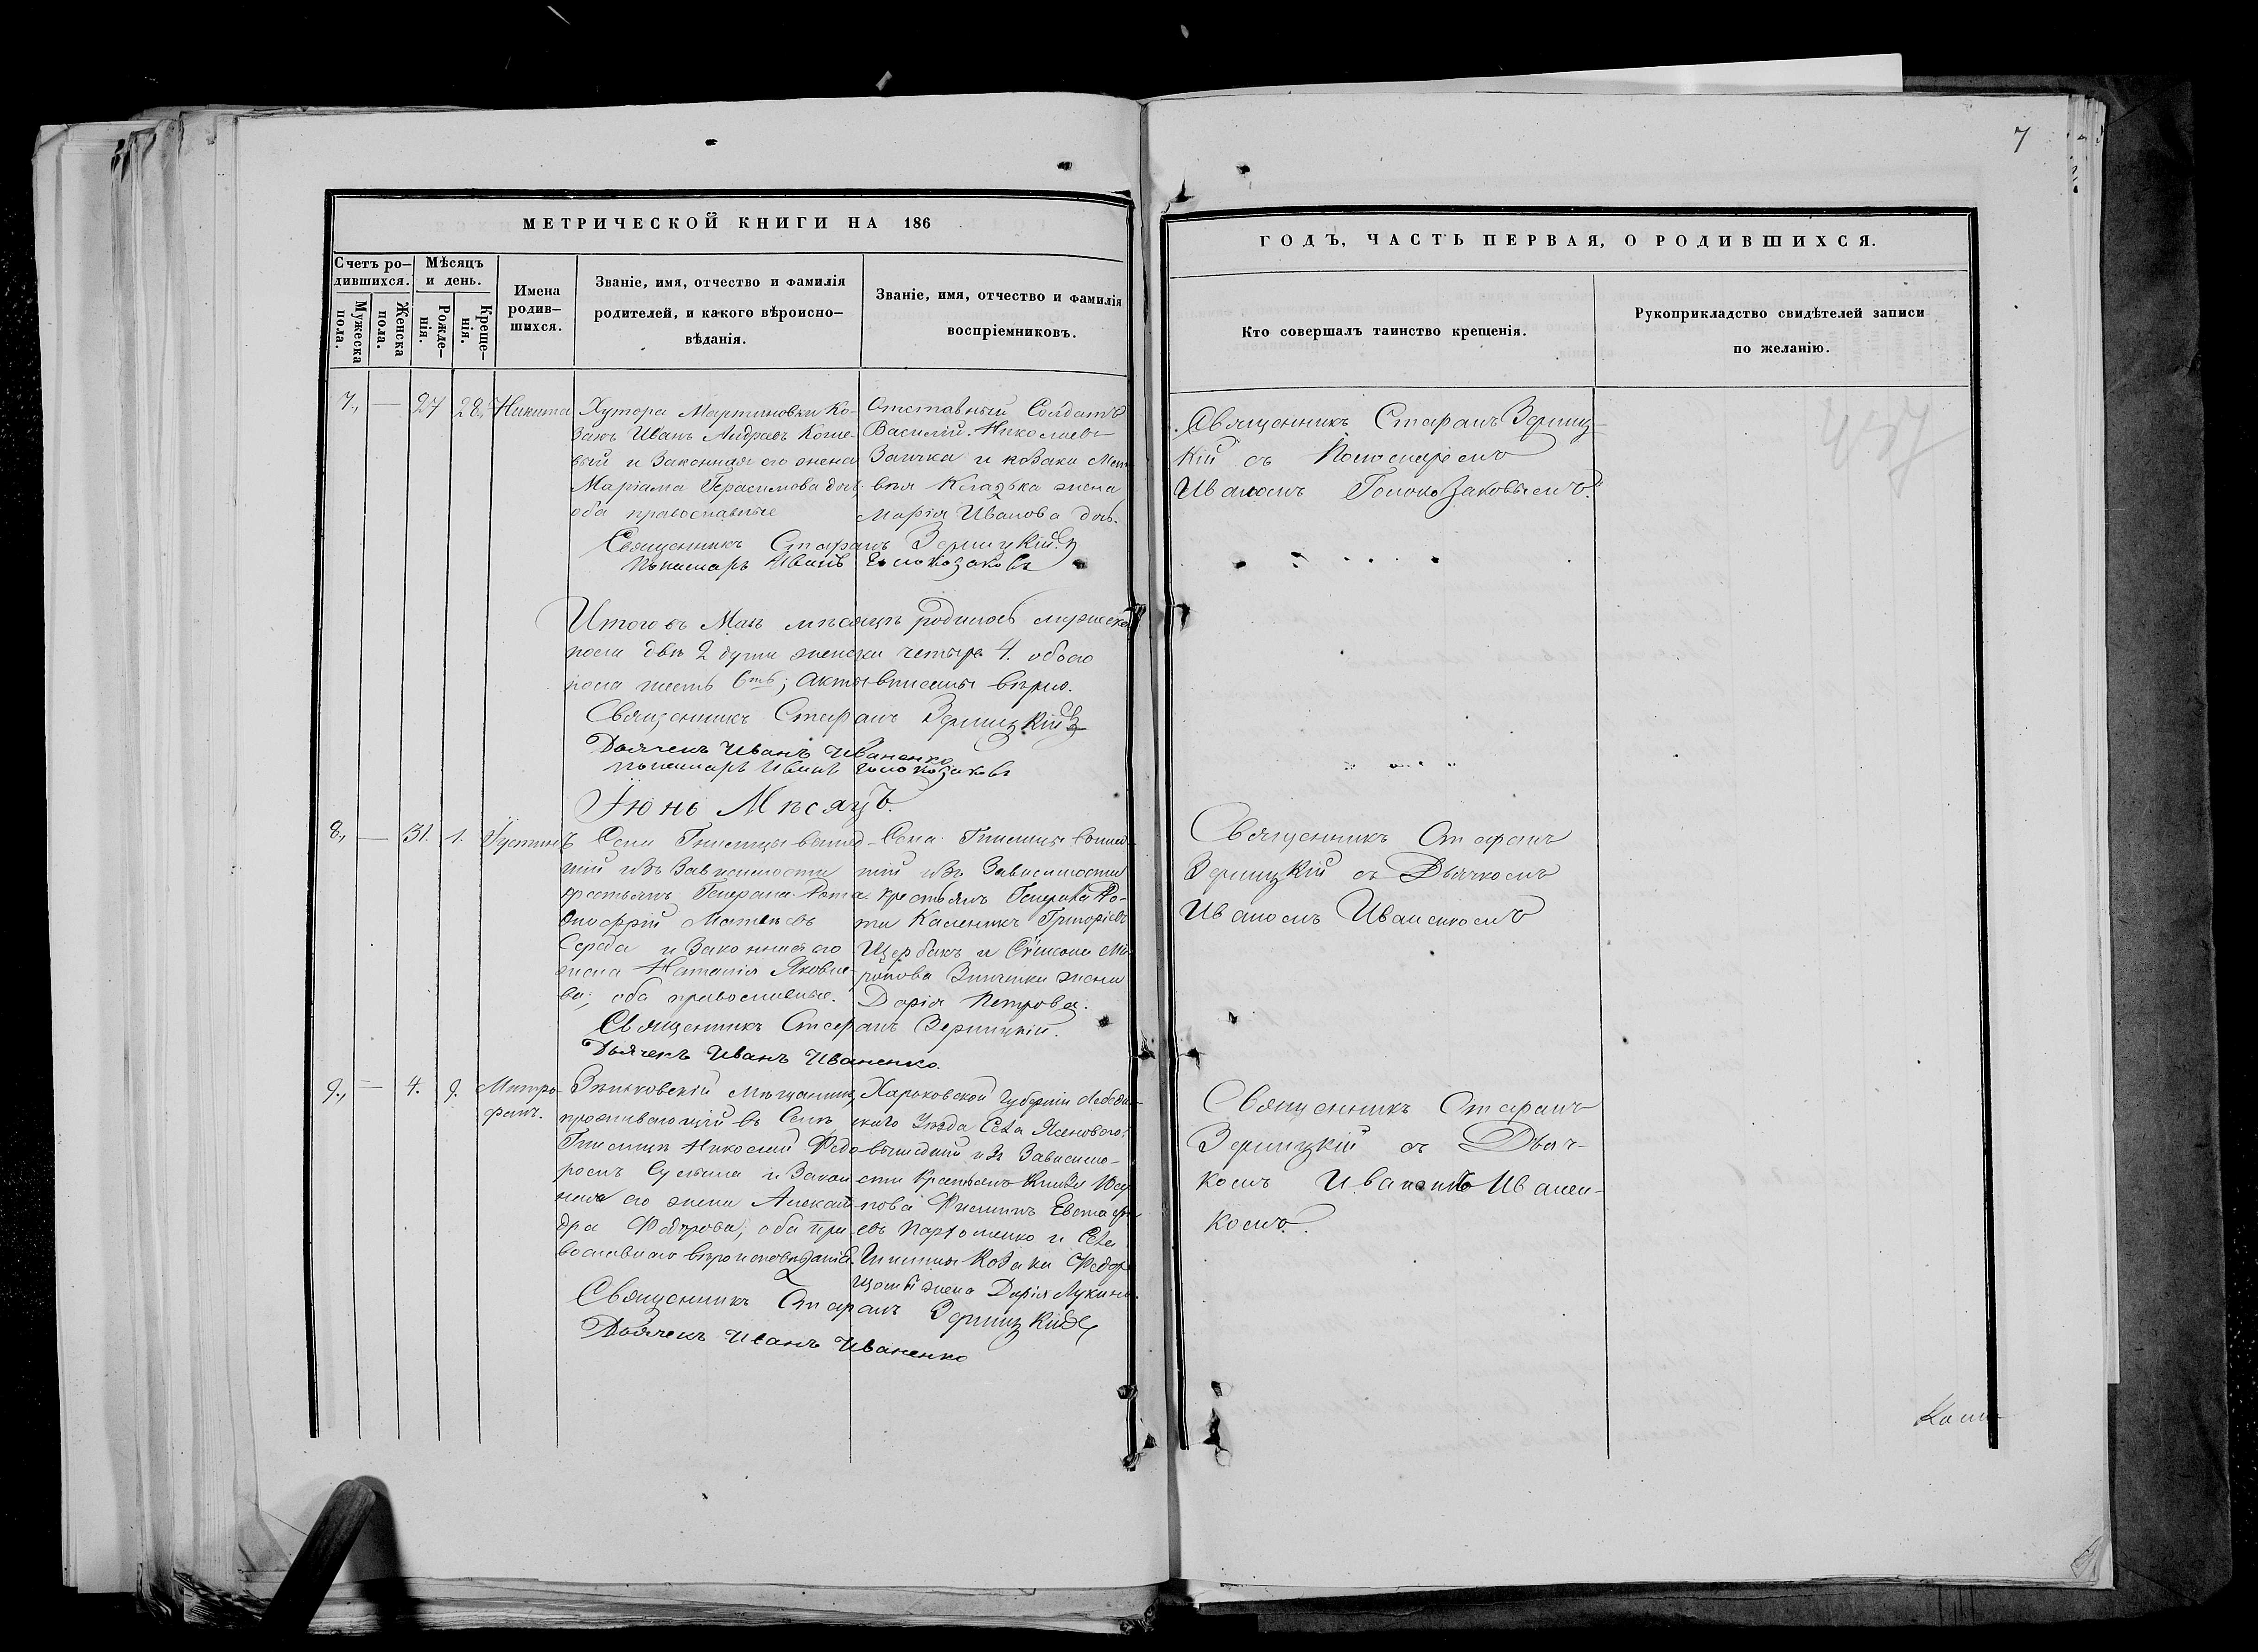 7
МЕТРИЧЕСКОЙ КНИГИ НА 186
ГОДЪ, ЧАСТЬ ПЕРВАЯ, О РОДИВШИХСЯ.
Счетъ ро-
дившихся.
Мужеска
пола.
Женска
пола.
Мѣсяцъ
и день.
Рожде-
нія.
Креще-
нія.
Имена
родив-
шихся.
Званіе, имя, отчество и фамилія
родителей, и какого вѣроиспо-
вѣданія.
Званіе, имя, отчество и фамилія
воспріемниковъ.
Кто совершалъ таинство крещенія.
Рукоприкладство свидѣтелей записи
по желанію.
7., — 27 28. Никита
Хутора Мартиновки Ко-
закъ Иванъ Андреевъ Коше-
вый и Законная его жена
Маріама Герасимова дочь
оба православные
Отставный Солдатъ
Василій Николаевъ
Заичка и козака
жена
Марія Ивановa дочь.
Священникъ Стефанъ Зерницкій
Понамарь Иванъ Голоко­заковъ
Священникъ Стефанъ Зерниц-
кій съ Пономаремъ
Иваномъ Голокозаковымъ.
Итого въ Маѣ мѣсяцѣ родилось мужеска
пола двѣ 2 души женска четыре 4. обоего
пола шесть 6ть; Акты вписаны вѣрно.
Священникъ Стефанъ Зерницкій
Дьячекъ Иванъ Иваненко
Понамарь Иванъ Голокозаковъ
Іюнь Мѣсяцъ.
8., — 31. 1. Іустинъ
Села Гнилицы вышед-
шій изъ Зависимости
крестьянъ Генерала Рота
Онофрій Матвѣевъ
Середа и Законная его
жена Наталія Яковле-
ва; оба православные.
Села Гнилицы вышед-
шій изъ Зависимости
крестьянъ Генерала Ро-
та Каленикъ Григорьевъ
Щербакъ и Симона Ми-
ронова жена
Дарія Петрова.
Священникъ Стефанъ Зерницкій.
Дьячекъ Иванъ Иваненко.
Священникъ Стефанъ
Зерницкій съ Дьячкомъ
Иваномъ Иваненкомъ
9., — 4. 9. Митро-
фанъ.
Зѣньковскій Мѣщанинъ
проживающій въ Селѣ
Гнилицѣ Николай Федо-
ровъ и Закон-
ная его жена Алексан-
дра Федорова; оба пра-
вославнаго вѣроисповѣданія.
Харьковской Губерніи Лебедин-
скаго Уѣзда Села Ясеноваго
вышедшій изъ Зависимо-
сти Крестьянъ Князя Юсу-
пова Филиппъ Евстафі-
евъ Пархоменко и Села
Гнилицы Козака Федора
жена Дарія Лукина.
Священникъ Стефанъ Зерницкій
Дьячекъ Иванъ Иваненко
Священникъ Стефанъ
Зерницкій съ Дьяч-
комъ Иваномъ Иванен-
комъ.